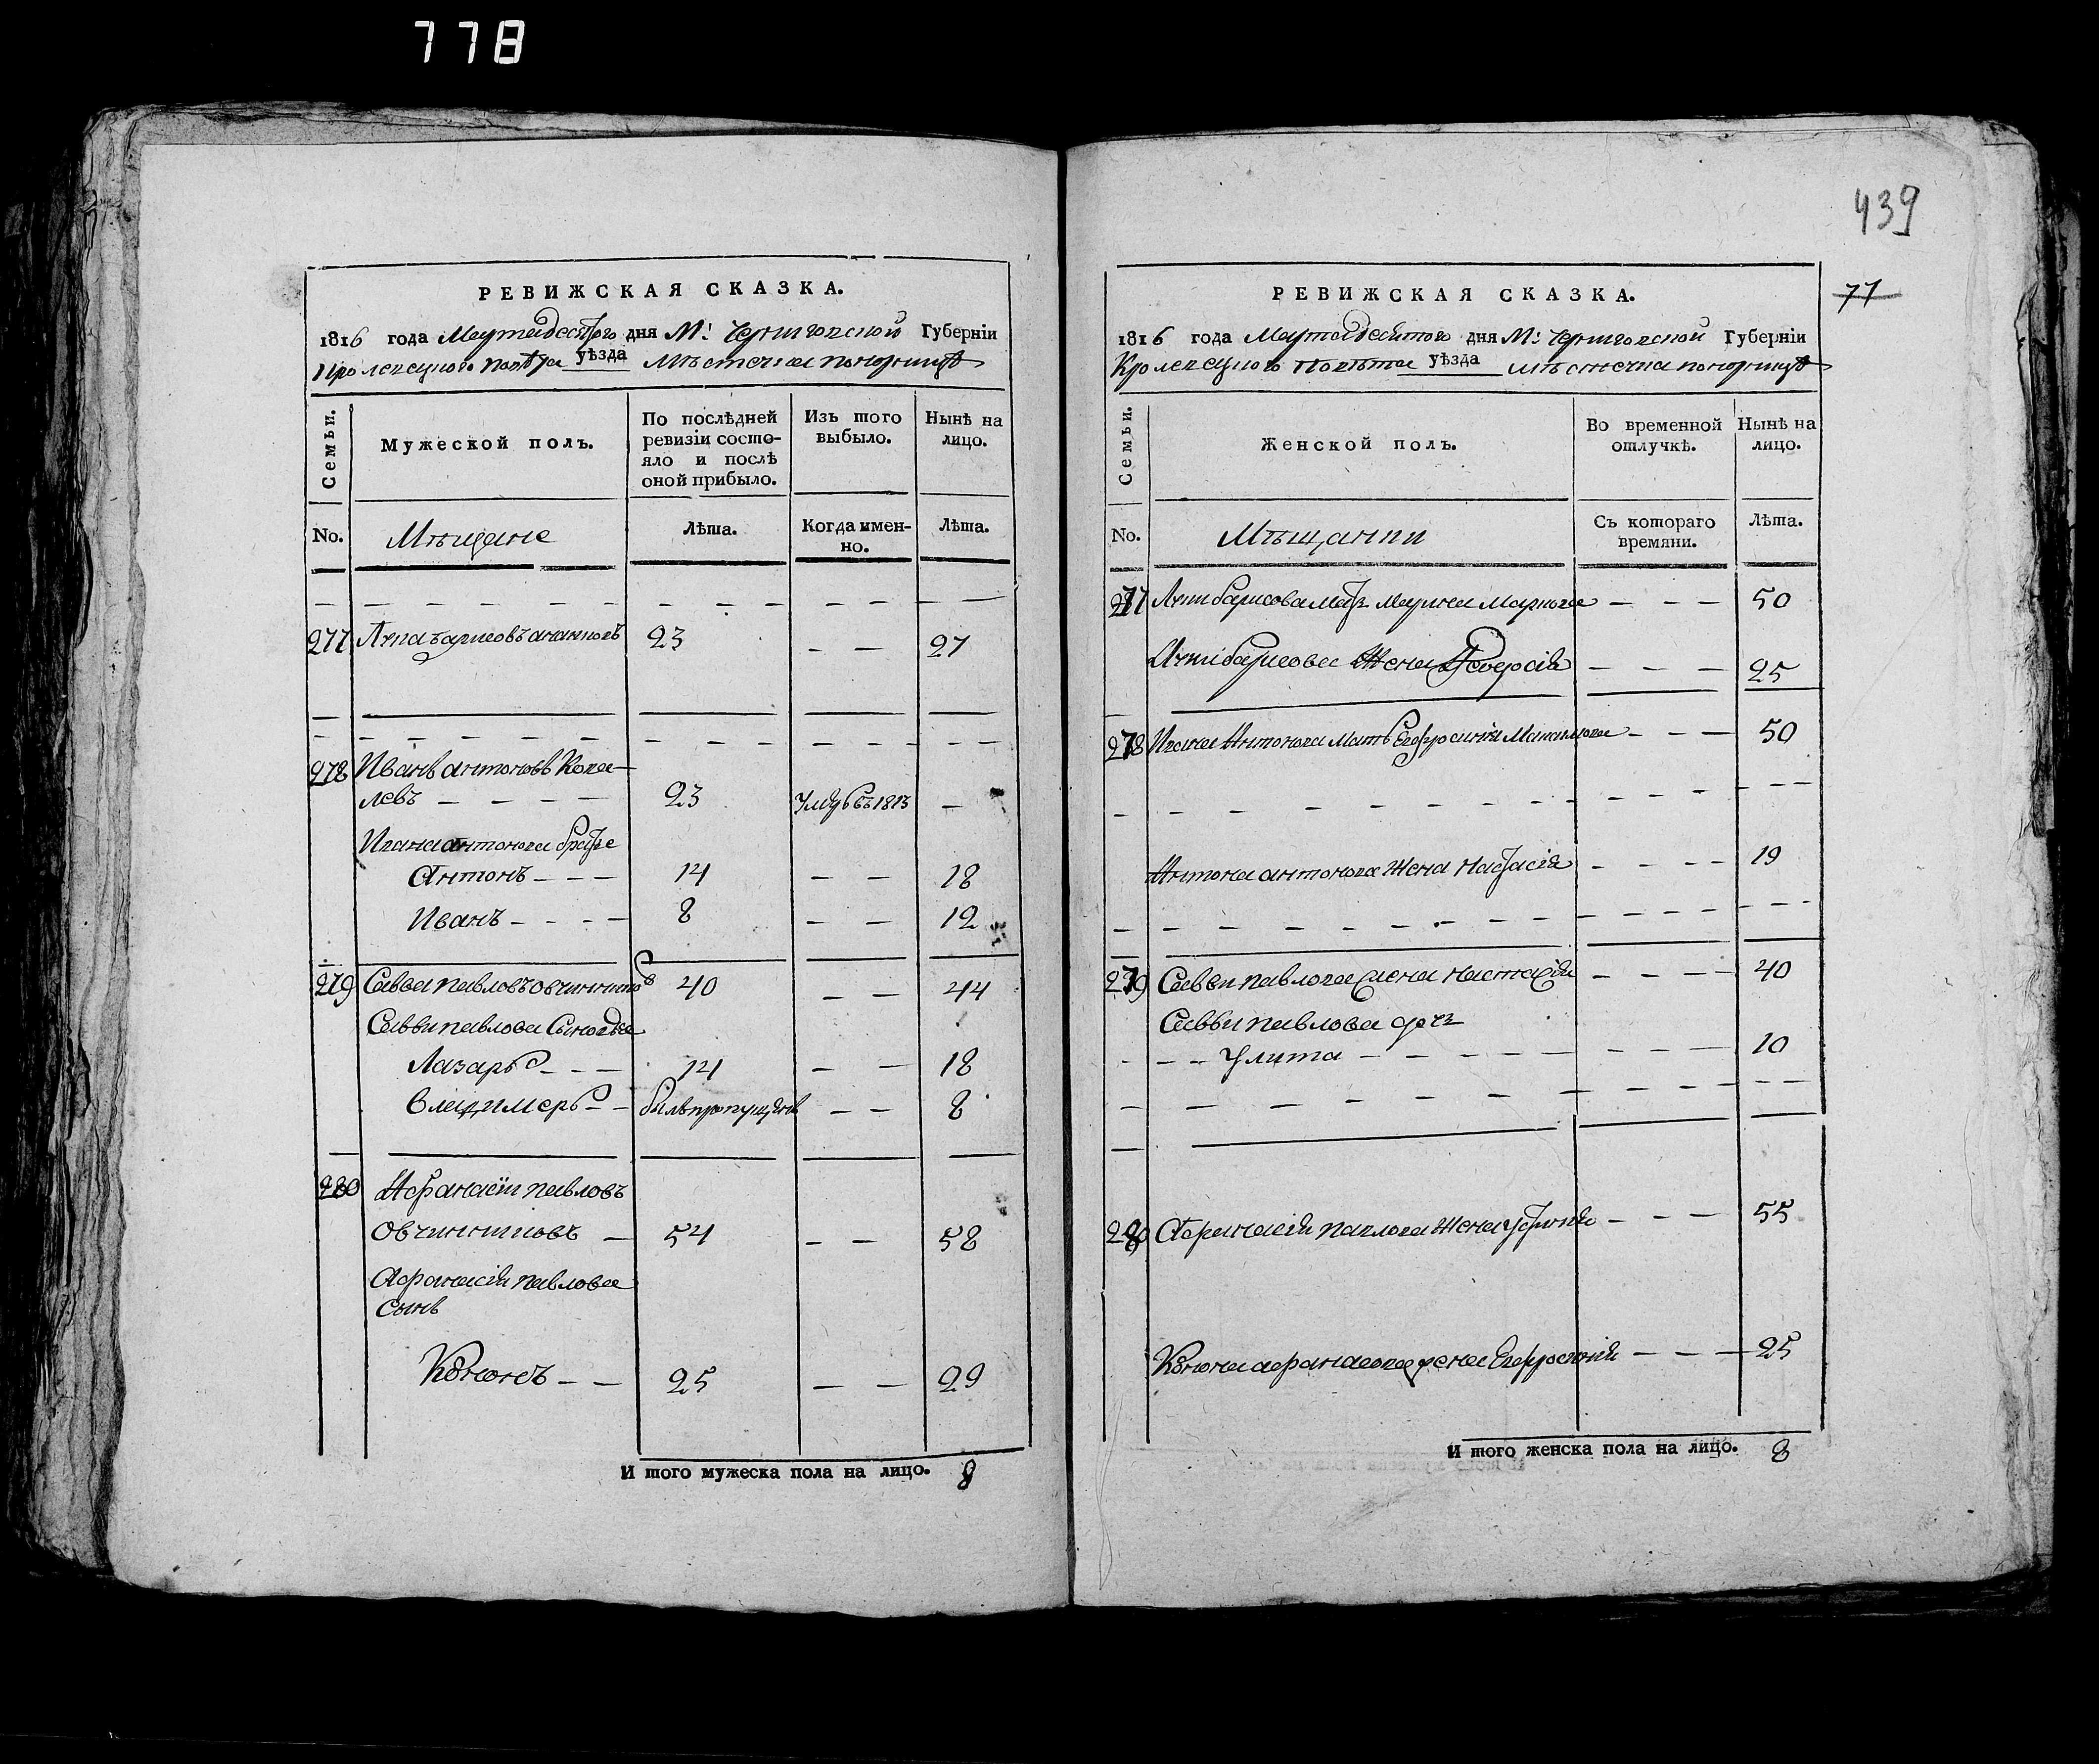 778
РЕВИЖСКАЯ СКАЗКА.
1816 года Маиядесятого дня М: Черниговской Губерніи
Кролевецкого повѣта уѣзда мѣстечка понорницѣ
Семьи.
Мужеской полъ.
По послѣдней ревизіи состо-
яло и послѣ
оной прибыло.
Изъ того выбыло.
Нынѣ на лицо.
No.
Мѣщане
Лѣта.
Когда имен-
но.
Лѣта.
277 23 — — 27
278 Иванъ антоновъ Кова-
левъ — — — — 23 1813 —
Ивана антонова братье
Антонъ — — — 14 — — 18
Иванъ — — — — 8 — — 12
279 Савва павловъ овчинниковъ 40 — — 44
Саввы павлова Сыновья
Лазарь — — — 14 — — 18
владимеръ — — былъ пропущенъ — — 8
280 Афанасіи павловъ
Овчинниковъ — 54 — — 58
Афанасія павлова
сынъ
Кононъ — — 25 — — 29
И того мужеска пола на лицо. 8
439
77
РЕВИЖСКАЯ СКАЗКА.
1816 года Маиядесятого дня М: Черниговской Губерніи
Кролевецкого Повѣта уѣзда мѣстечка понорницѣ
Семьи.
Женской полъ.
Во временной отлучкѣ.
Нынѣ на лицо.
No.
Мѣщанки
Съ котораго времяни.
Лѣта.
277 мать Марина Маркова — — — 50
жена Феодосія — — — 25
278 Ивана Антонова мать Евфросинія — — — 50
Антона антонова жена Настасія — — — — 19
279 Саввы павлова жена Настасія — — — — 40
Саввы павлова дочь
— — — Улита — — — — — — — — — 10
280 Афанасія павлова жена Устинія — — — 55
Конона афанасова жена Евфросинія — — — 25
И того женска пола на лицо. 8